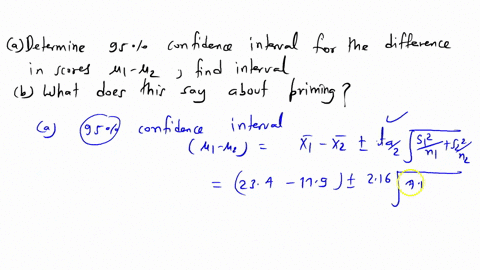 (a) Determine 95% confidence interval for the difference
in scores μ1-μ2 , find interval
(b) What does this say about priming?
(a) 95% confidence interval
(μ1-μ2) = x̄1 - x̄2 ± tα/2 √(S1²/n1 + S2²/n2)
= (23.4 - 17.9) ± 2.16 √